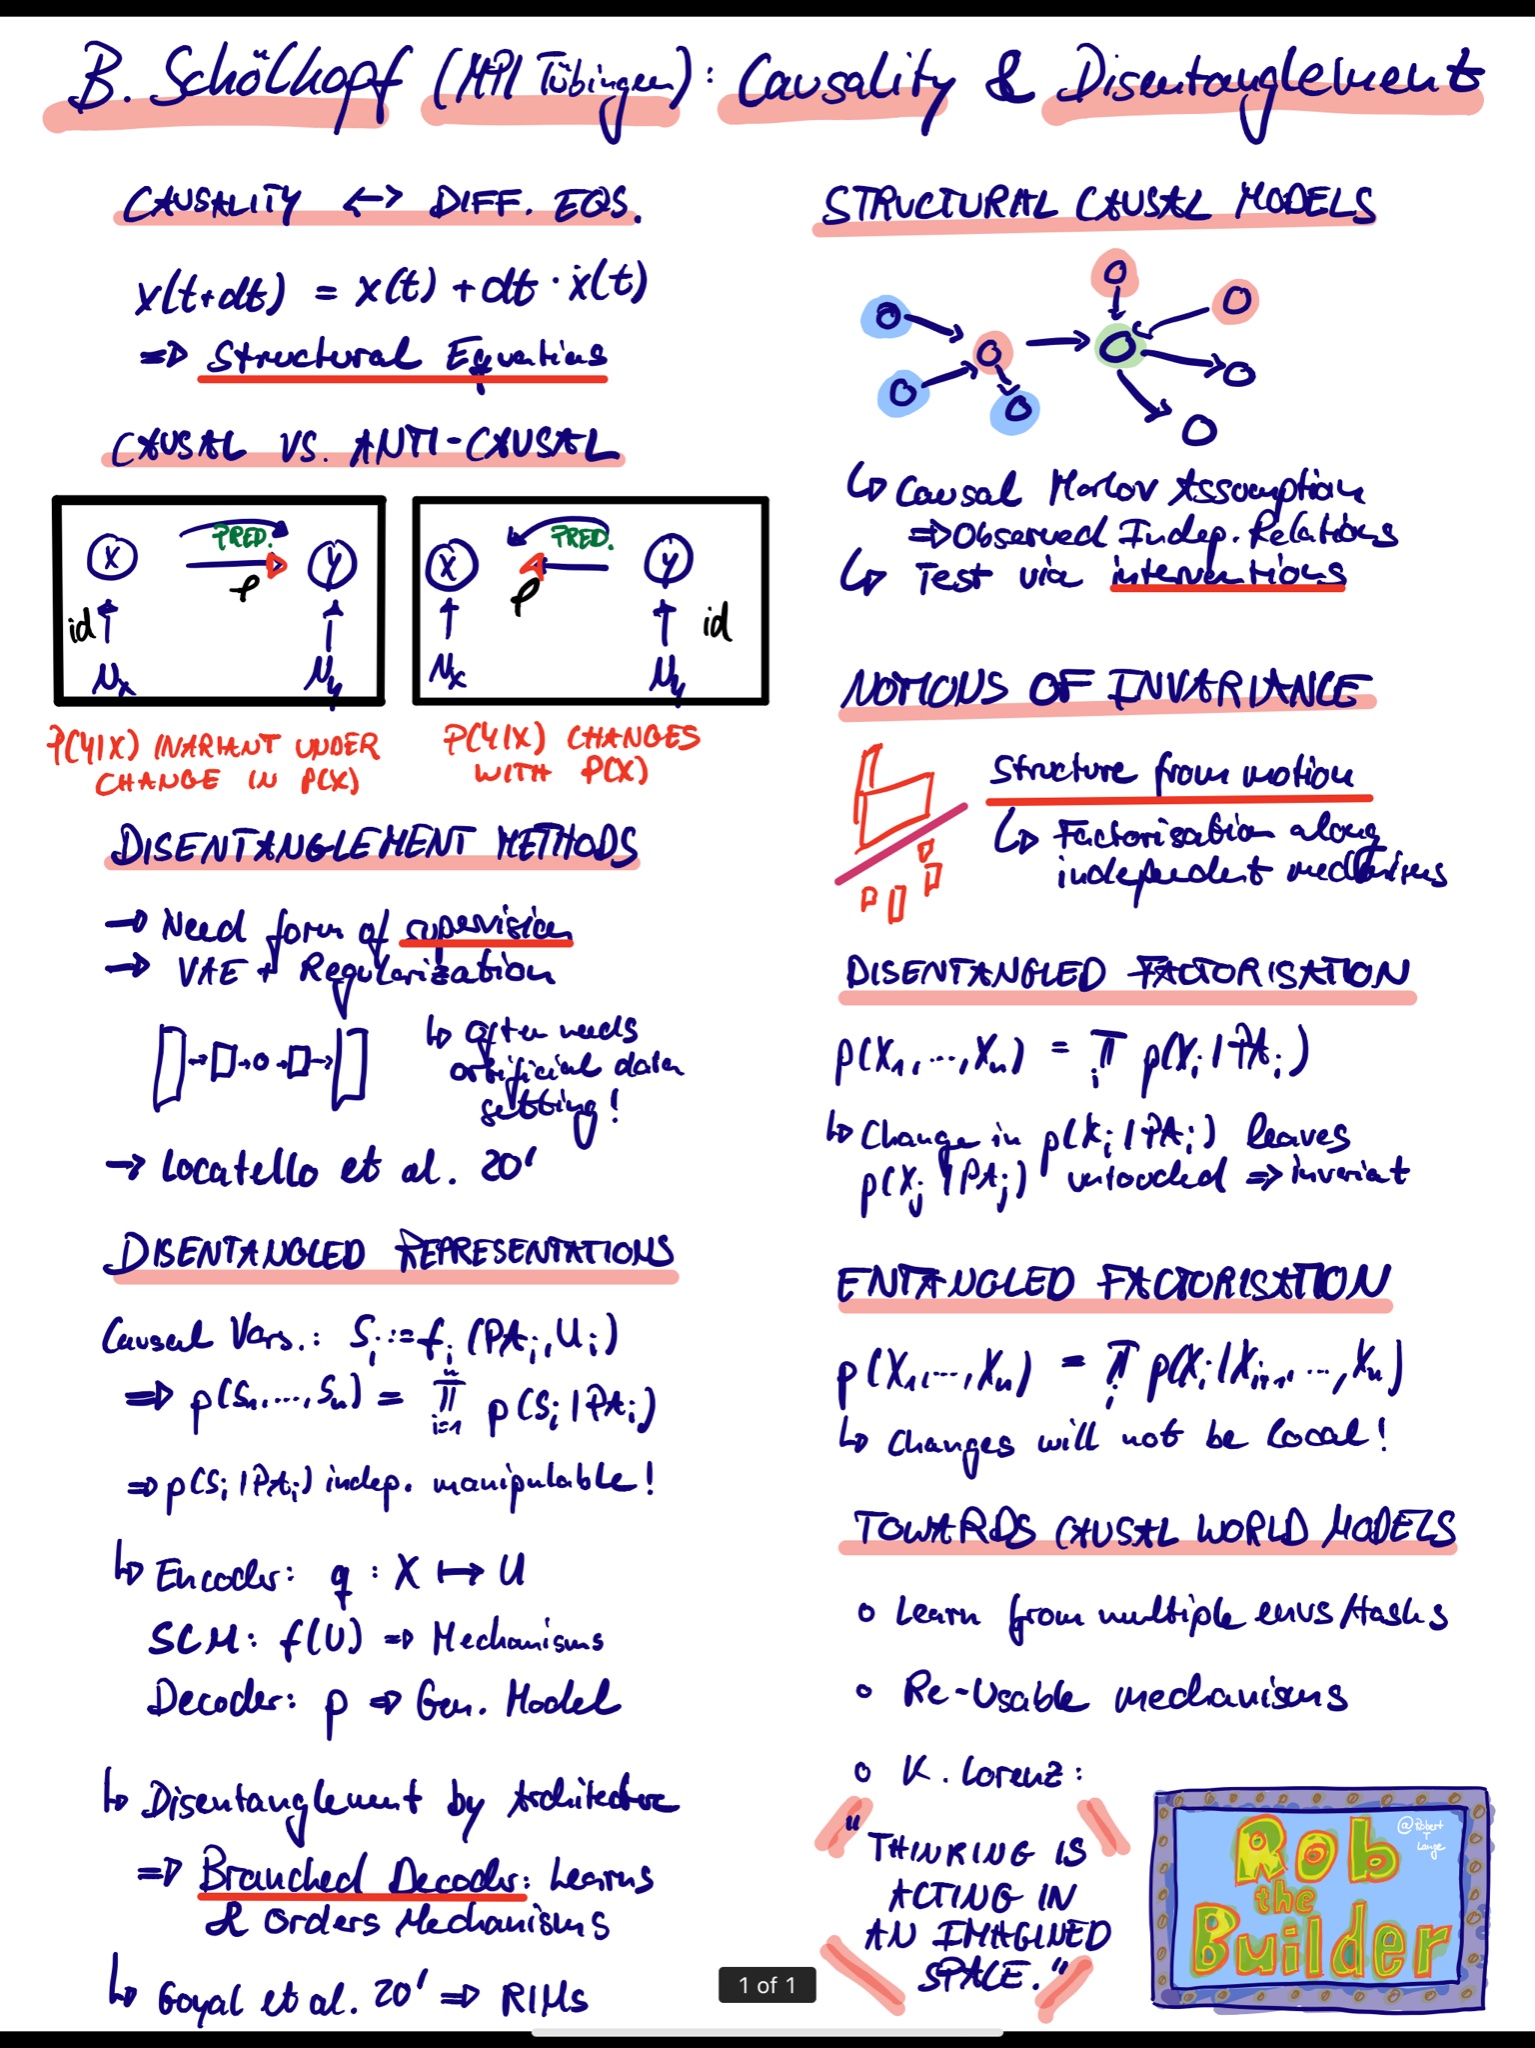 B. Schölkopf (MPI Tübingen): Causality & Disentanglement
CAUSALITY <-> DIFF. EQS.
x(t+dt) = x(t) + dt · ẋ(t)
=> Structural Equations
CAUSAL VS. ANTI-CAUSAL
X PRED. Y
φ
id
Nx Ny
P(Y|X) INVARIANT UNDER
CHANGE IN P(X)
X PRED. Y
φ
id
Nx Ny
P(Y|X) CHANGES
WITH P(X)
DISENTANGLEMENT METHODS
→ Need form of supervision
→ VAE + Regularization
↳ Often needs
artificial data
setting!
→ Locatello et al. 20'
DISENTANGLED REPRESENTATIONS
Causal Vars.: Sᵢ := fᵢ (PAᵢ, Uᵢ)
=> p(S₁, ..., Sₙ) = ∏ᵢ₌₁ⁿ p(Sᵢ | PAᵢ)
=> p(Sᵢ | PAᵢ) indep. manipulable!
↳ Encoder: q : X ↦ U
SCM: f(U) => Mechanisms
Decoder: p => Gen. Model
↳ Disentanglement by Architecture
=> Branched Decoder: Learns
& Orders Mechanisms
↳ Goyal et al. 20' => RIMs
STRUCTURAL CAUSAL MODELS
↳ Causal Markov Assumption
=> Observed Indep. Relations
↳ Test via interventions
NOTIONS OF INVARIANCE
Structure from motion
↳ Factorisation along
independent mechanisms
DISENTANGLED FACTORISATION
p(X₁, ..., Xₙ) = ∏ᵢ p(Xᵢ | PAᵢ)
↳ Change in p(Xᵢ | PAᵢ) leaves
p(Xⱼ | PAⱼ) untouched => invariant
ENTANGLED FACTORISATION
p(X₁, ..., Xₙ) = ∏ᵢ p(Xᵢ | Xᵢ₊₁, ..., Xₙ)
↳ Changes will not be local!
TOWARDS CAUSAL WORLD MODELS
o Learn from multiple envs/tasks
o Re-Usable mechanisms
o K. Lorenz:
"THINKING IS
ACTING IN
AN IMAGINED
SPACE."
@Robert
T
Lange
Rob
the
Builder
1 of 1